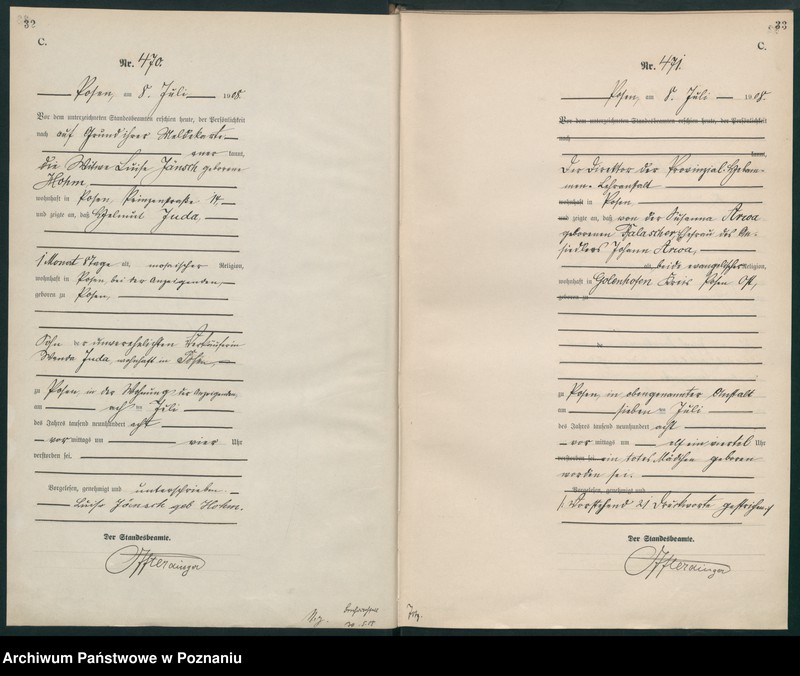 32
C.
Nr. 470.
Posen, am 8. Juli 1908.
Vor dem unterzeichneten Standesbeamten erschien heute, der Persönlichkeit
nach auf Grund ihrer Meldekarte
kannt,
die Witwe Luise Jänsch geborene
Hohm,
wohnhaft in Posen, Prinzenstraße
und zeigte an, daß Helmut Juda,
1 Monat 8 Tage alt, mosaischer Religion,
wohnhaft in Posen, bei der Anzeigenden,
geboren zu Posen,
Sohn der unverehelichten
Wanda Juda, wohnhaft in Posen,
zu Posen, in der Wohnung der Anzeigenden,
am acht ten Juli
des Jahres tausend neunhundert acht
vor mittags um vier Uhr
verstorben sei.
Vorgelesen, genehmigt und unterschrieben
Luise Jänsch geb Hohm.
Der Standesbeamte.
33
C.
Nr. 471.
Posen, am 8. Juli 1908.
Vor dem unterzeichneten Standesbeamten erschien heute, der Persönlichkeit
nach
kannt,
Der Direktor der Provinzial-Hebam-
men-Lehranstalt
wohnhaft in Posen
und zeigte an, daß von der Susanna
geborenen Ehefrau des An-
siedlers Johann
alt, beide evangelischer Religion,
wohnhaft in Golenhofen Kreis Posen Ost,
geboren zu
de
zu Posen, in obengenannter Anstalt
am sieben ten Juli
des Jahres tausend neunhundert acht
vor mittags um elf ein viertel Uhr
verstorben sei. ein totes Mädchen geboren
worden sei.
Vorgelesen, genehmigt und
Vorstehend 21 Druckworte gestrichen.
Der Standesbeamte.
Archiwum Państwowe w Poznaniu